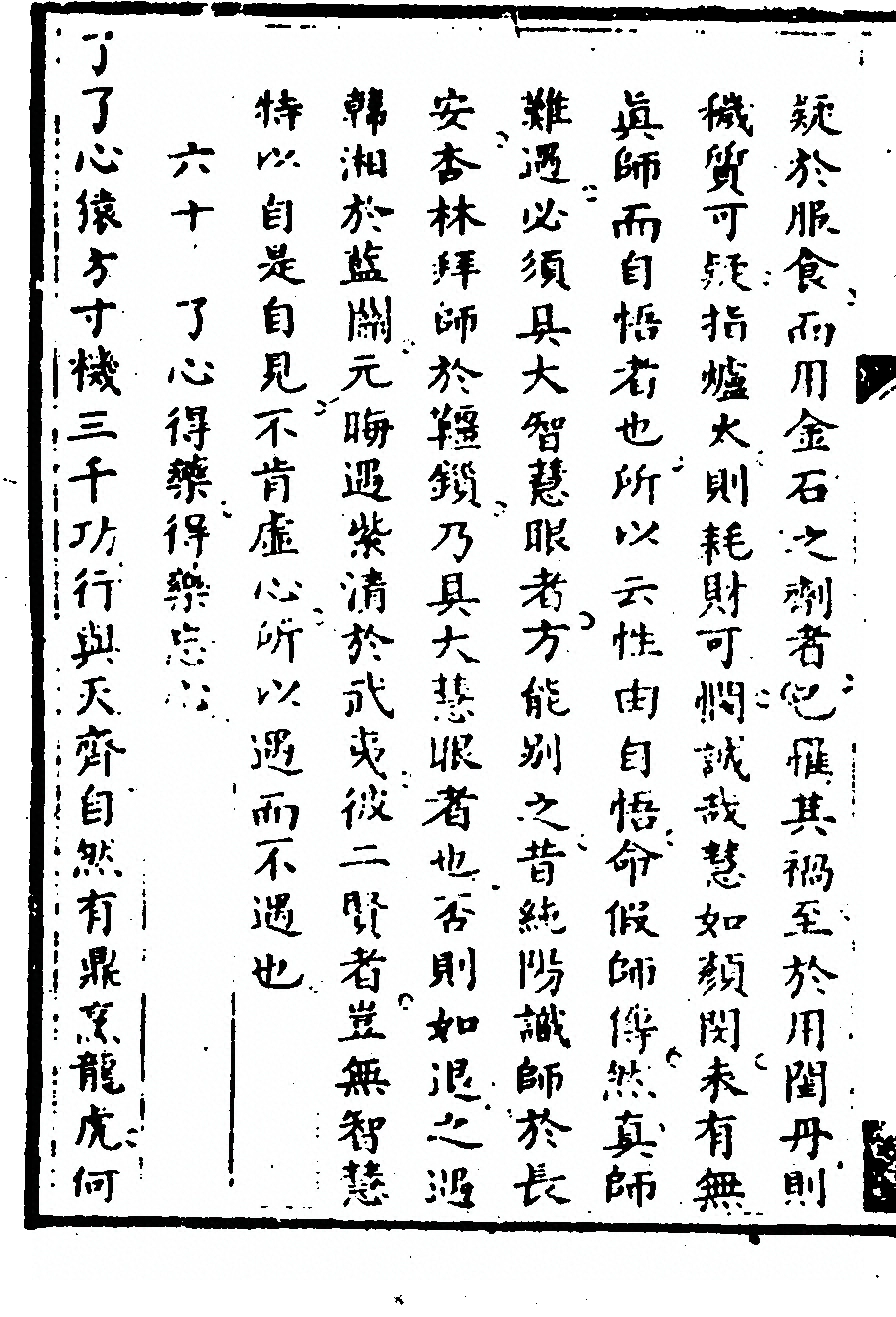 疑於服食而用金石之劑者也罹其禍至於用閨丹則
穢質可疑指爐火則耗財可憫誠哉慧如顏閔未有無
眞師而自悟者也所以云性由自悟命假師傳然真師
難遇必須具大智慧眼者方能別之昔純陽識師於長
安杏林拜師於韁鎖乃具大慧眼者也否則如退之遇
韓湘於藍關元晦遇紫清於武夷彼二賢者豈無智慧
特以自是自見不肯虛心所以遇而不遇也
六十 了心得藥得藥忘心
了了心猿方寸機三千功行與天齊自然有鼎烹龍虎何